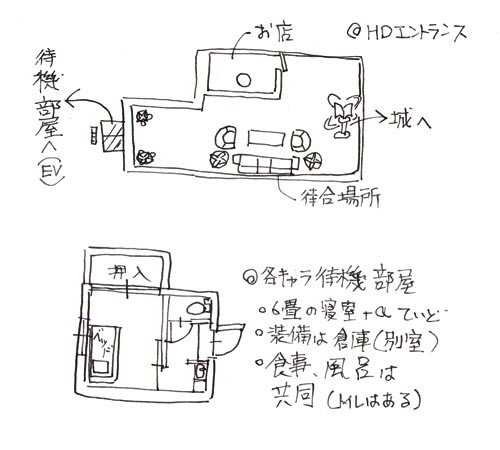 お店
◎HDエントランス
待機部屋へ(EV)
城へ
待合場所
押入
ベッド
◎各キャラ待機部屋
○6畳の寝室+αていど
○装備は倉庫(別室)
○食事、風呂は
共同(MLはある)